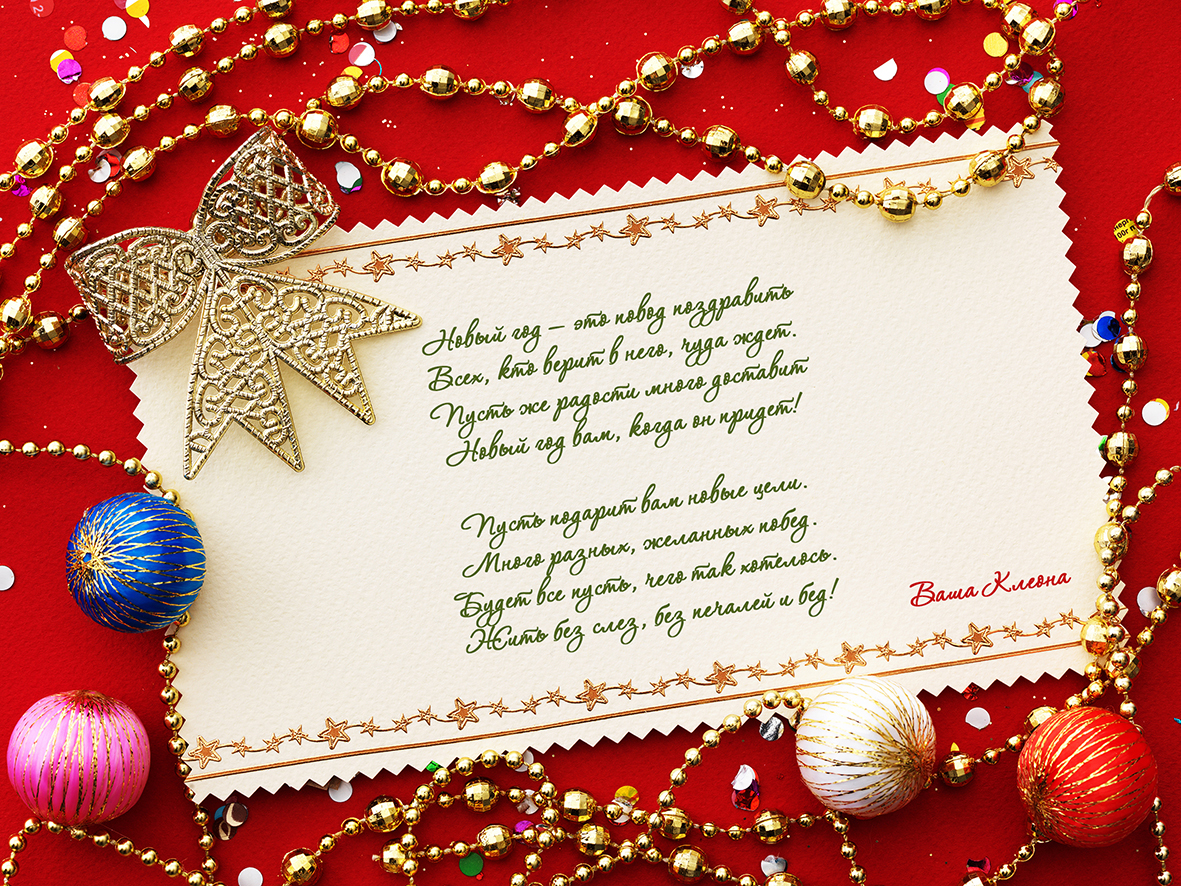 Новый год – это повод поздравить
Всех, кто верит в него, чуда ждет.
Пусть же радости много доставит
Новый год вам, когда он придет!
Пусть подарит вам новые цели.
Много разных, желанных побед.
Будет все пусть, чего так хотелось.
Жить без слез, без печалей и бед!
Ваша Клеона